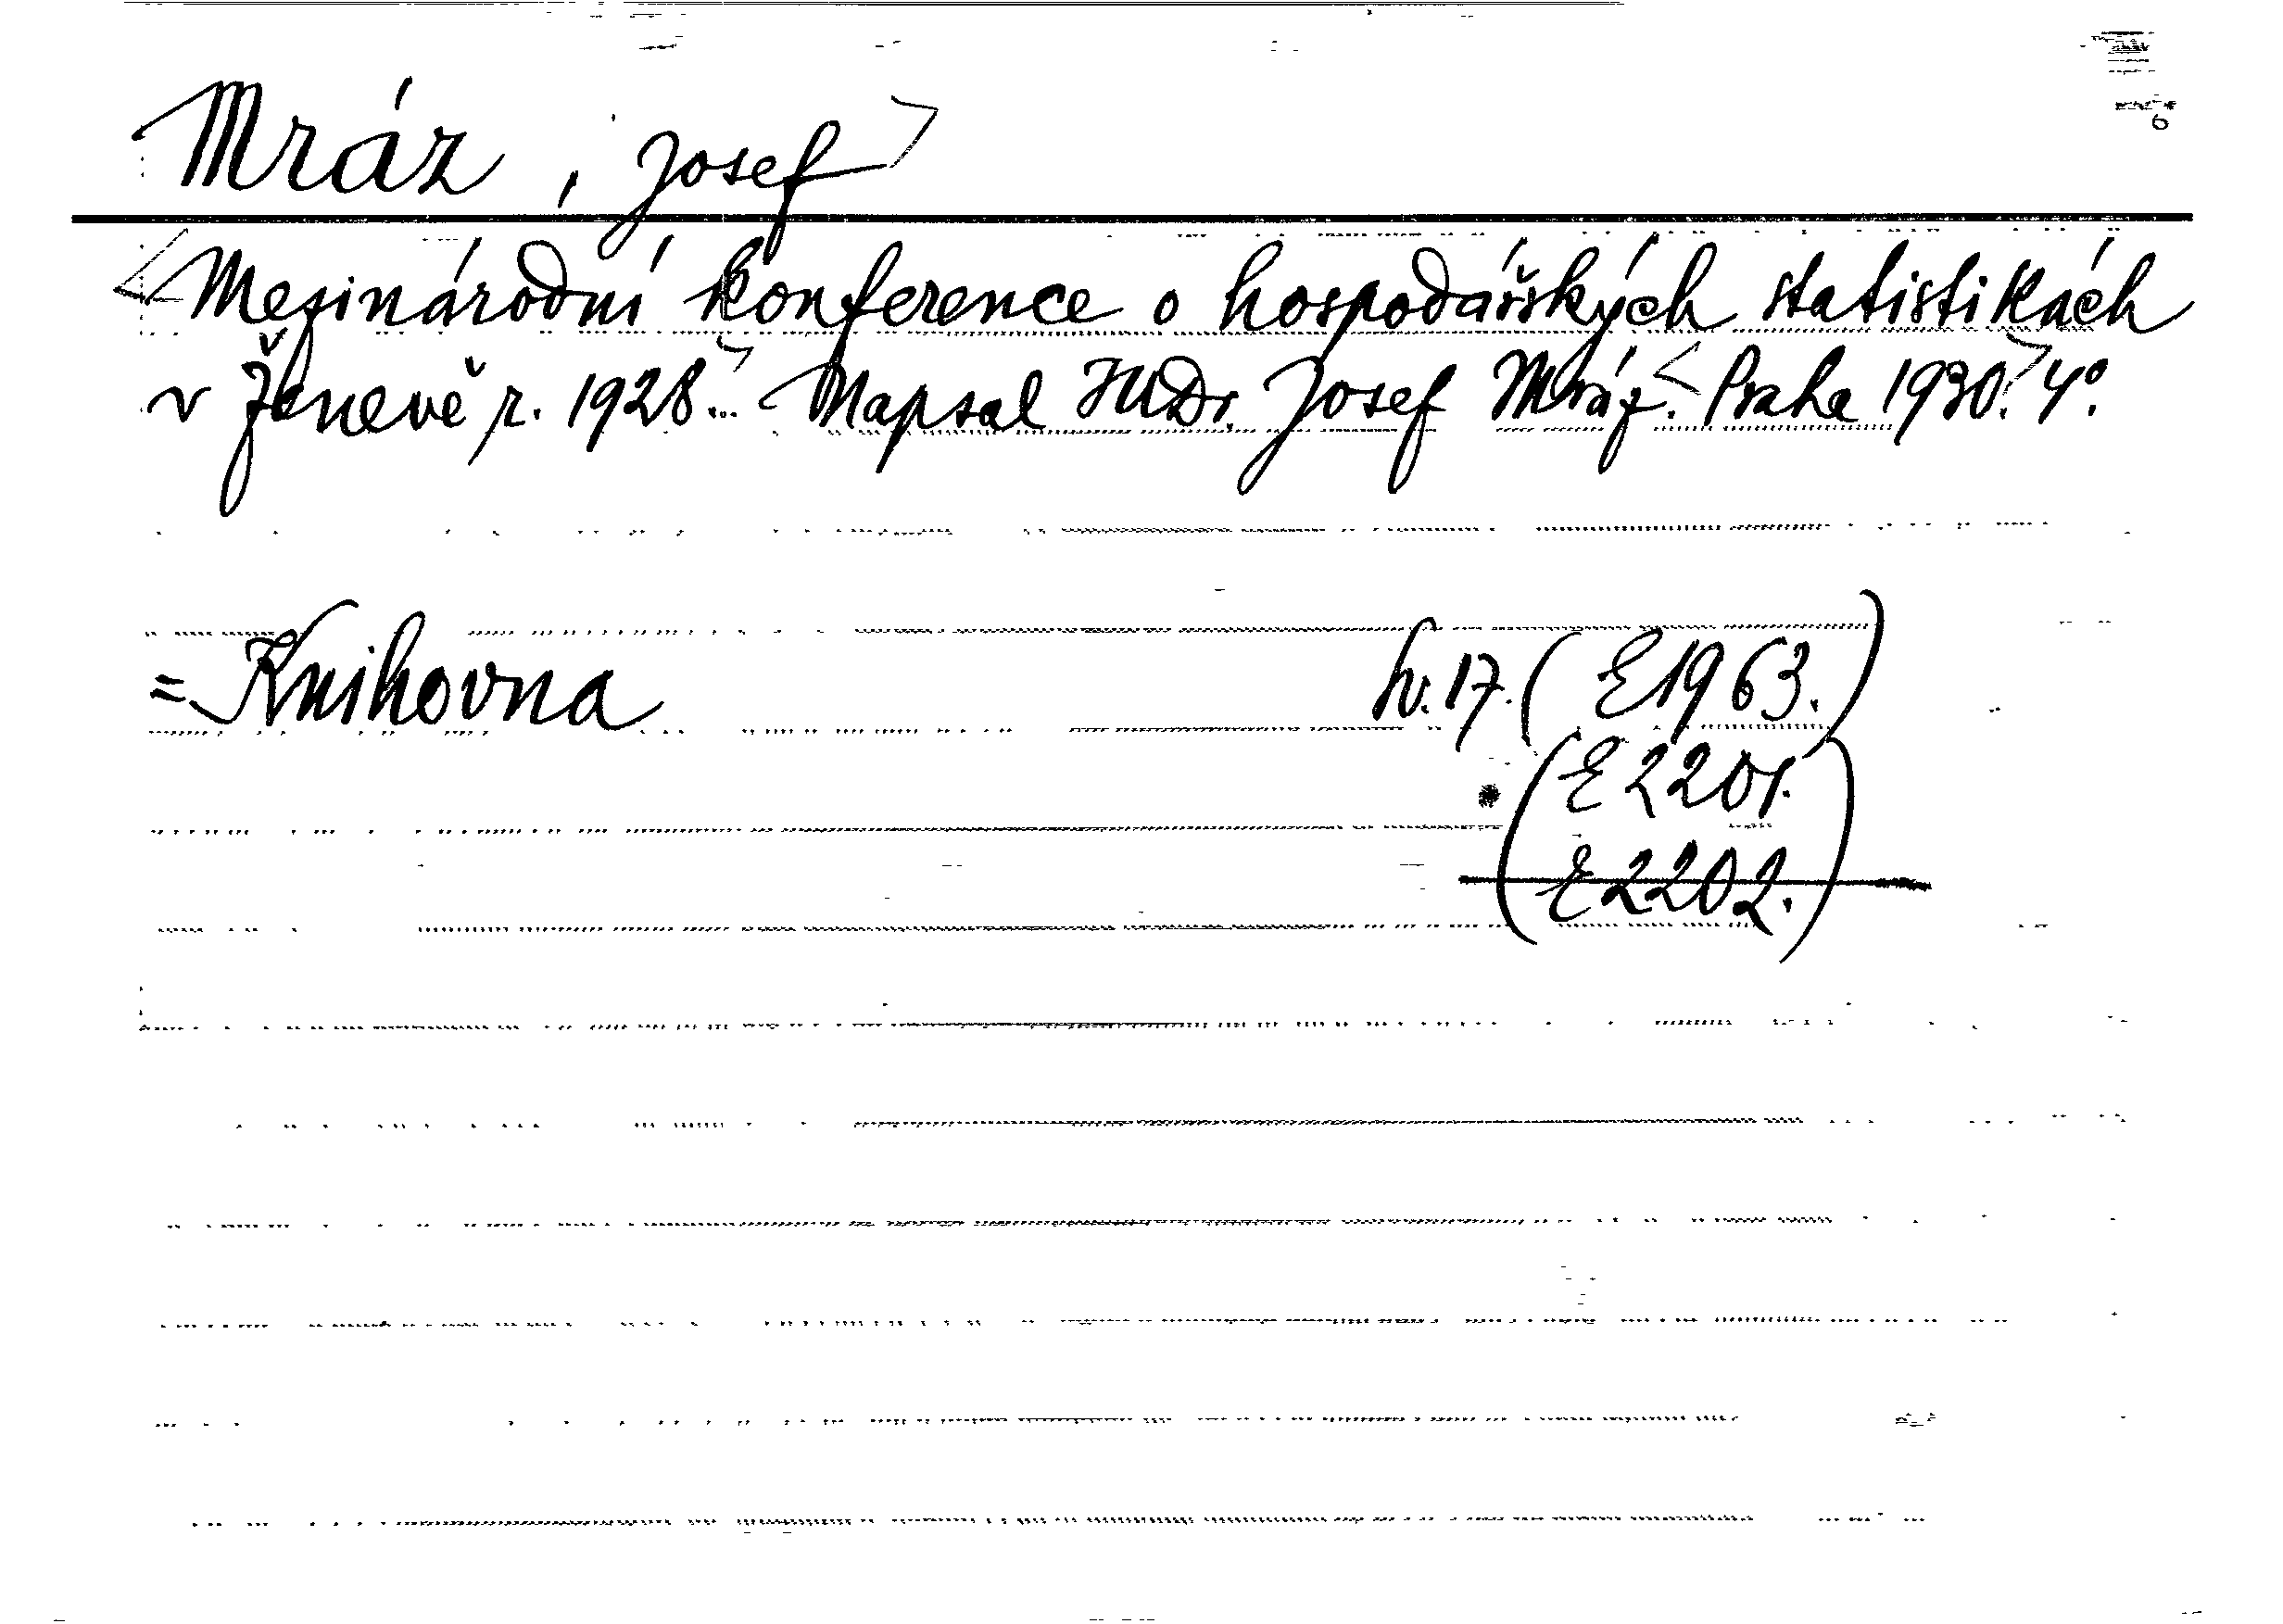 Mráz, Josef
Mezinárodní konference o hospodářských statistikách
v Ženevě r. 1928... Napsal JUDr. Josef Mráz. Praha 1930. 4°.
= Knihovna sv. 17. (E 1963.)
(E 2201.
E 2202.)